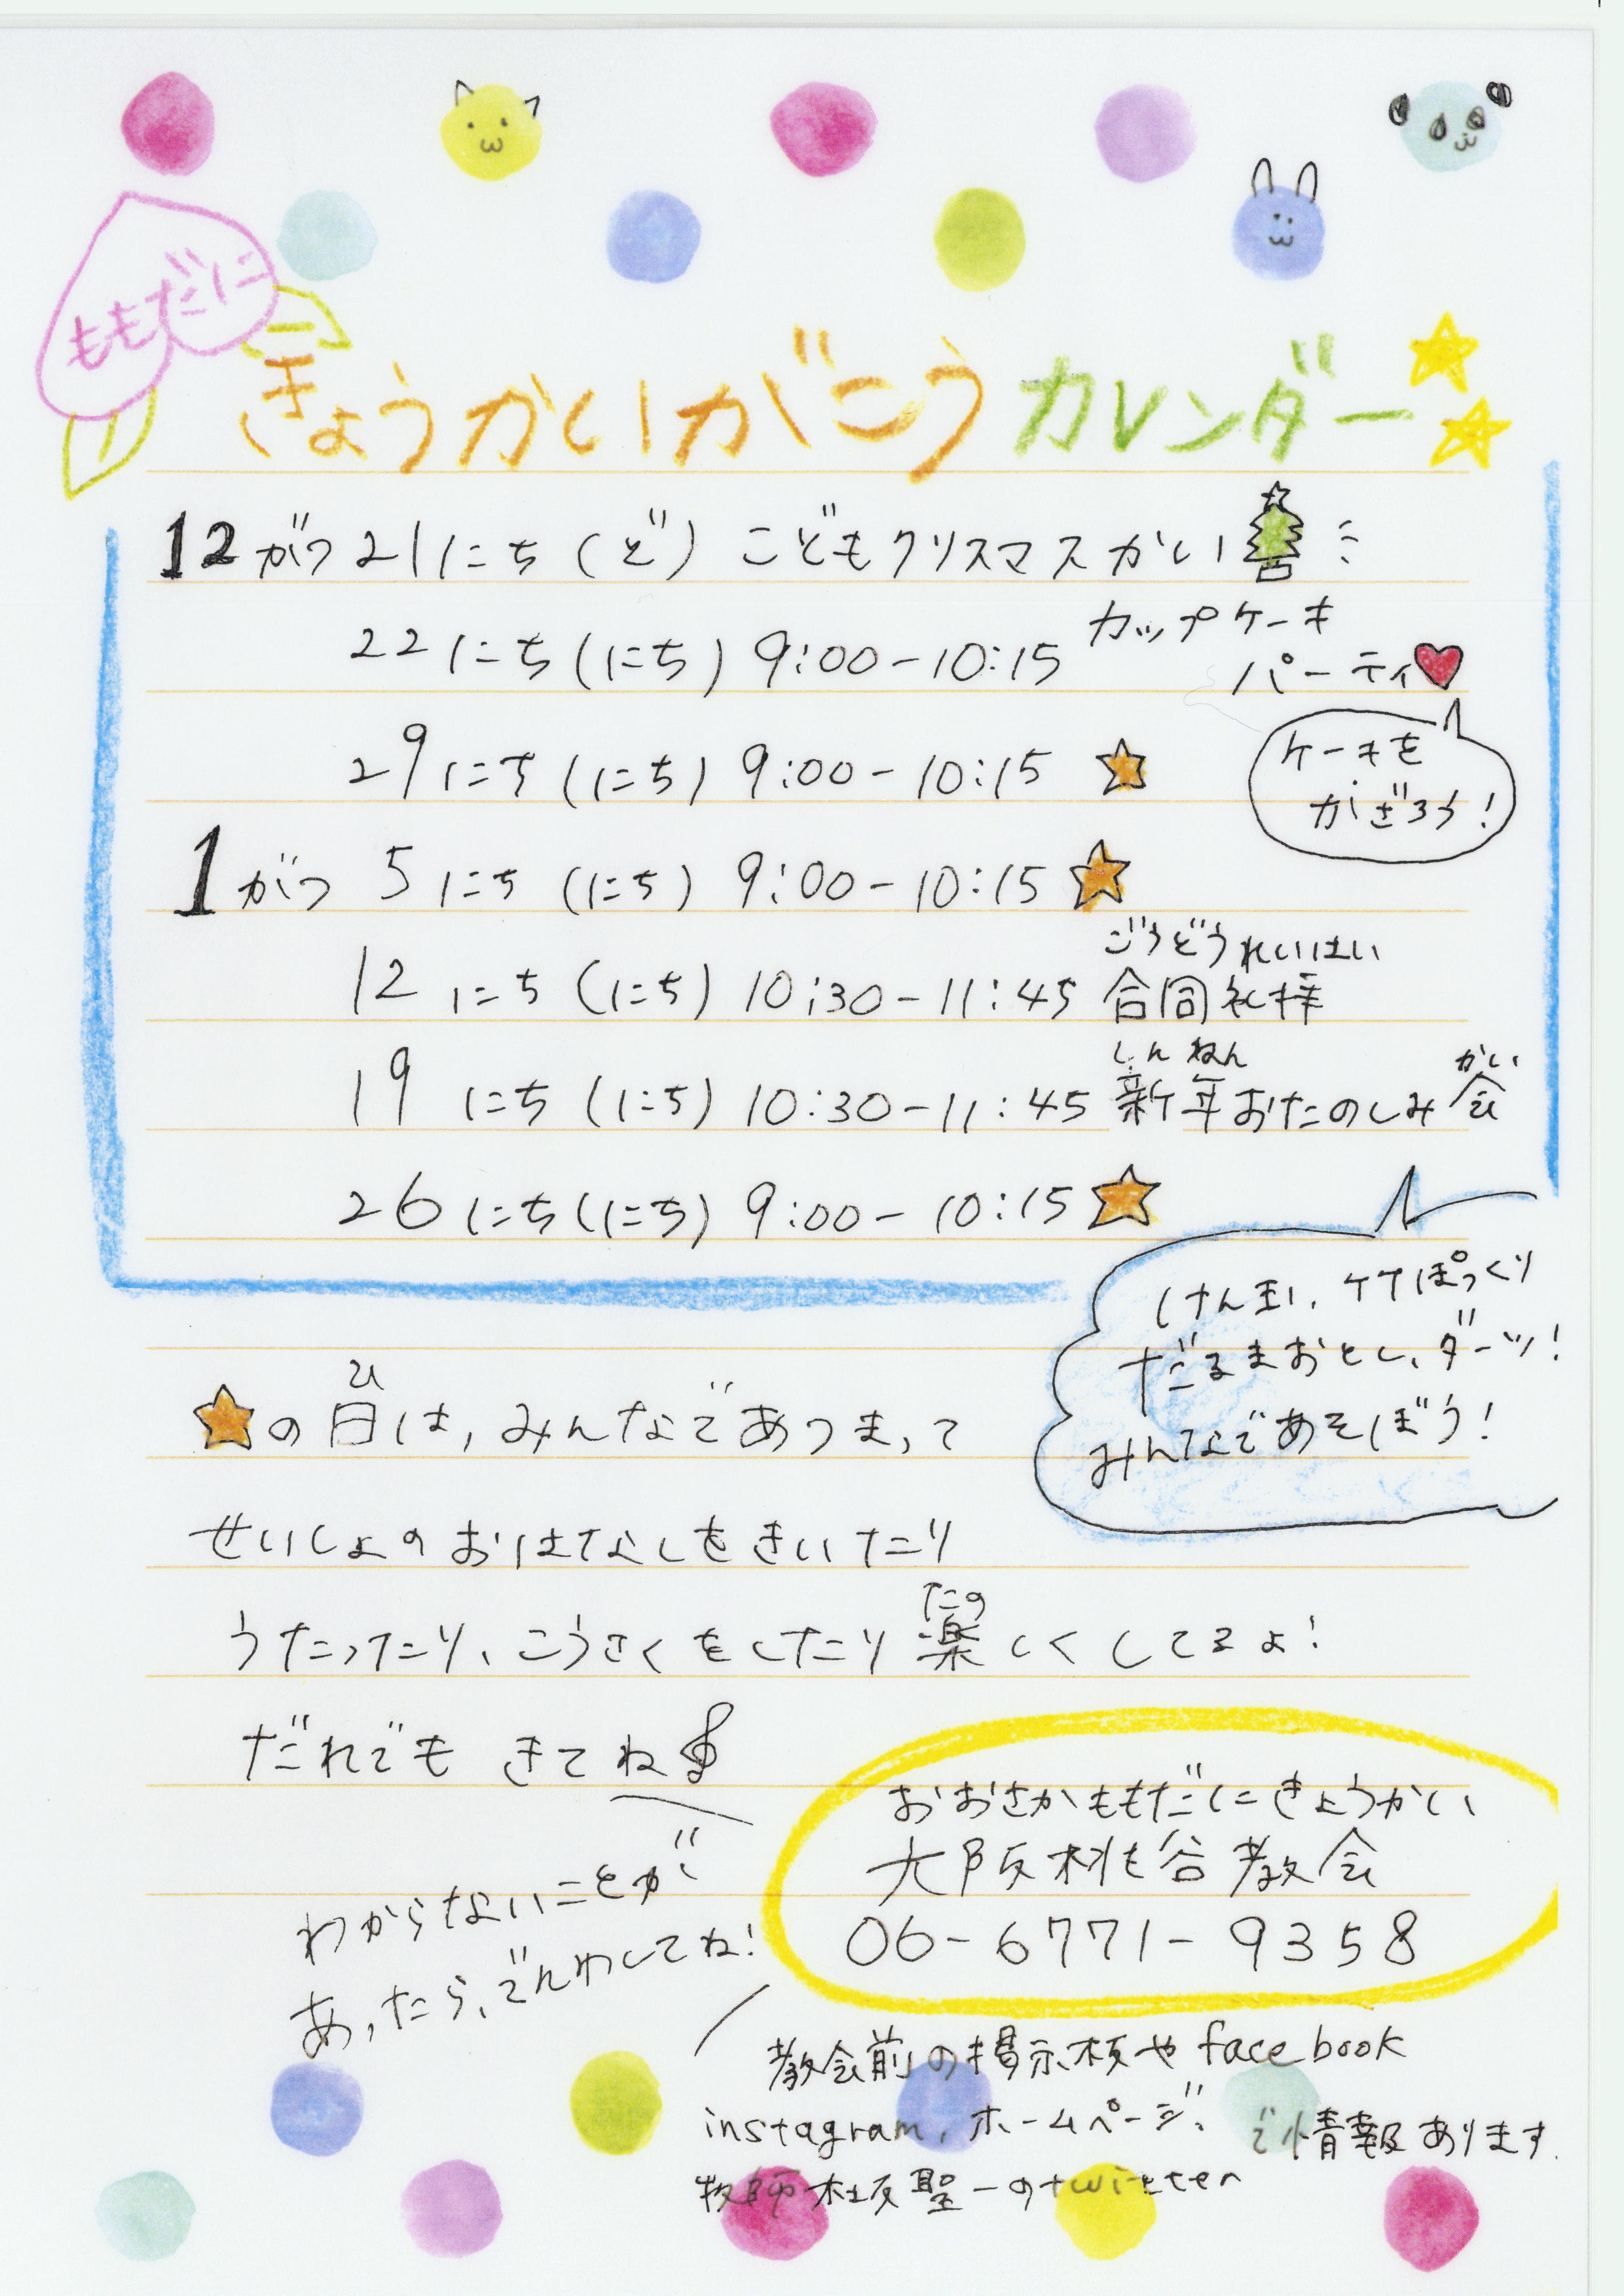 ももだに
きょうかいがっこうカレンダー
12がつ21にち(ど) こどもクリスマスかい
22にち(にち) 9:00-10:15 カップケーキ
パーティ
ケーキを
かざろう!
29にち(にち) 9:00-10:15
1がつ 5にち(にち) 9:00-10:15
ごうどうれいはい
12にち(にち) 10:30-11:45 合同礼拝
しんねん かい
19にち(にち) 10:30-11:45 新年おたのしみ会
26にち(にち) 9:00-10:15
けん玉、ケケぽっくり
だるまおとし、ダーツ!
みんなであそぼう!
ひ
の日は、みんなであつまって
せいしょのおはなしをきいたり
たの
うたったり、こうさくをしたり楽しくしてるよ!
だれでも きてね
わからないことが
あったら、でんわしてね!
おおさかももだにきょうかい
大阪桃谷教会
06-6771-9358
教会前の掲示板やfacebook
instagram、ホームページ、
牧師 聖一のtwitter
で情報あります.